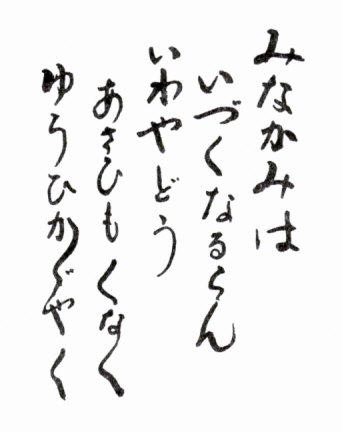 みなかみは
いづくなるらん
いわやどう
あさひもくなく
ゆうひかゞやく